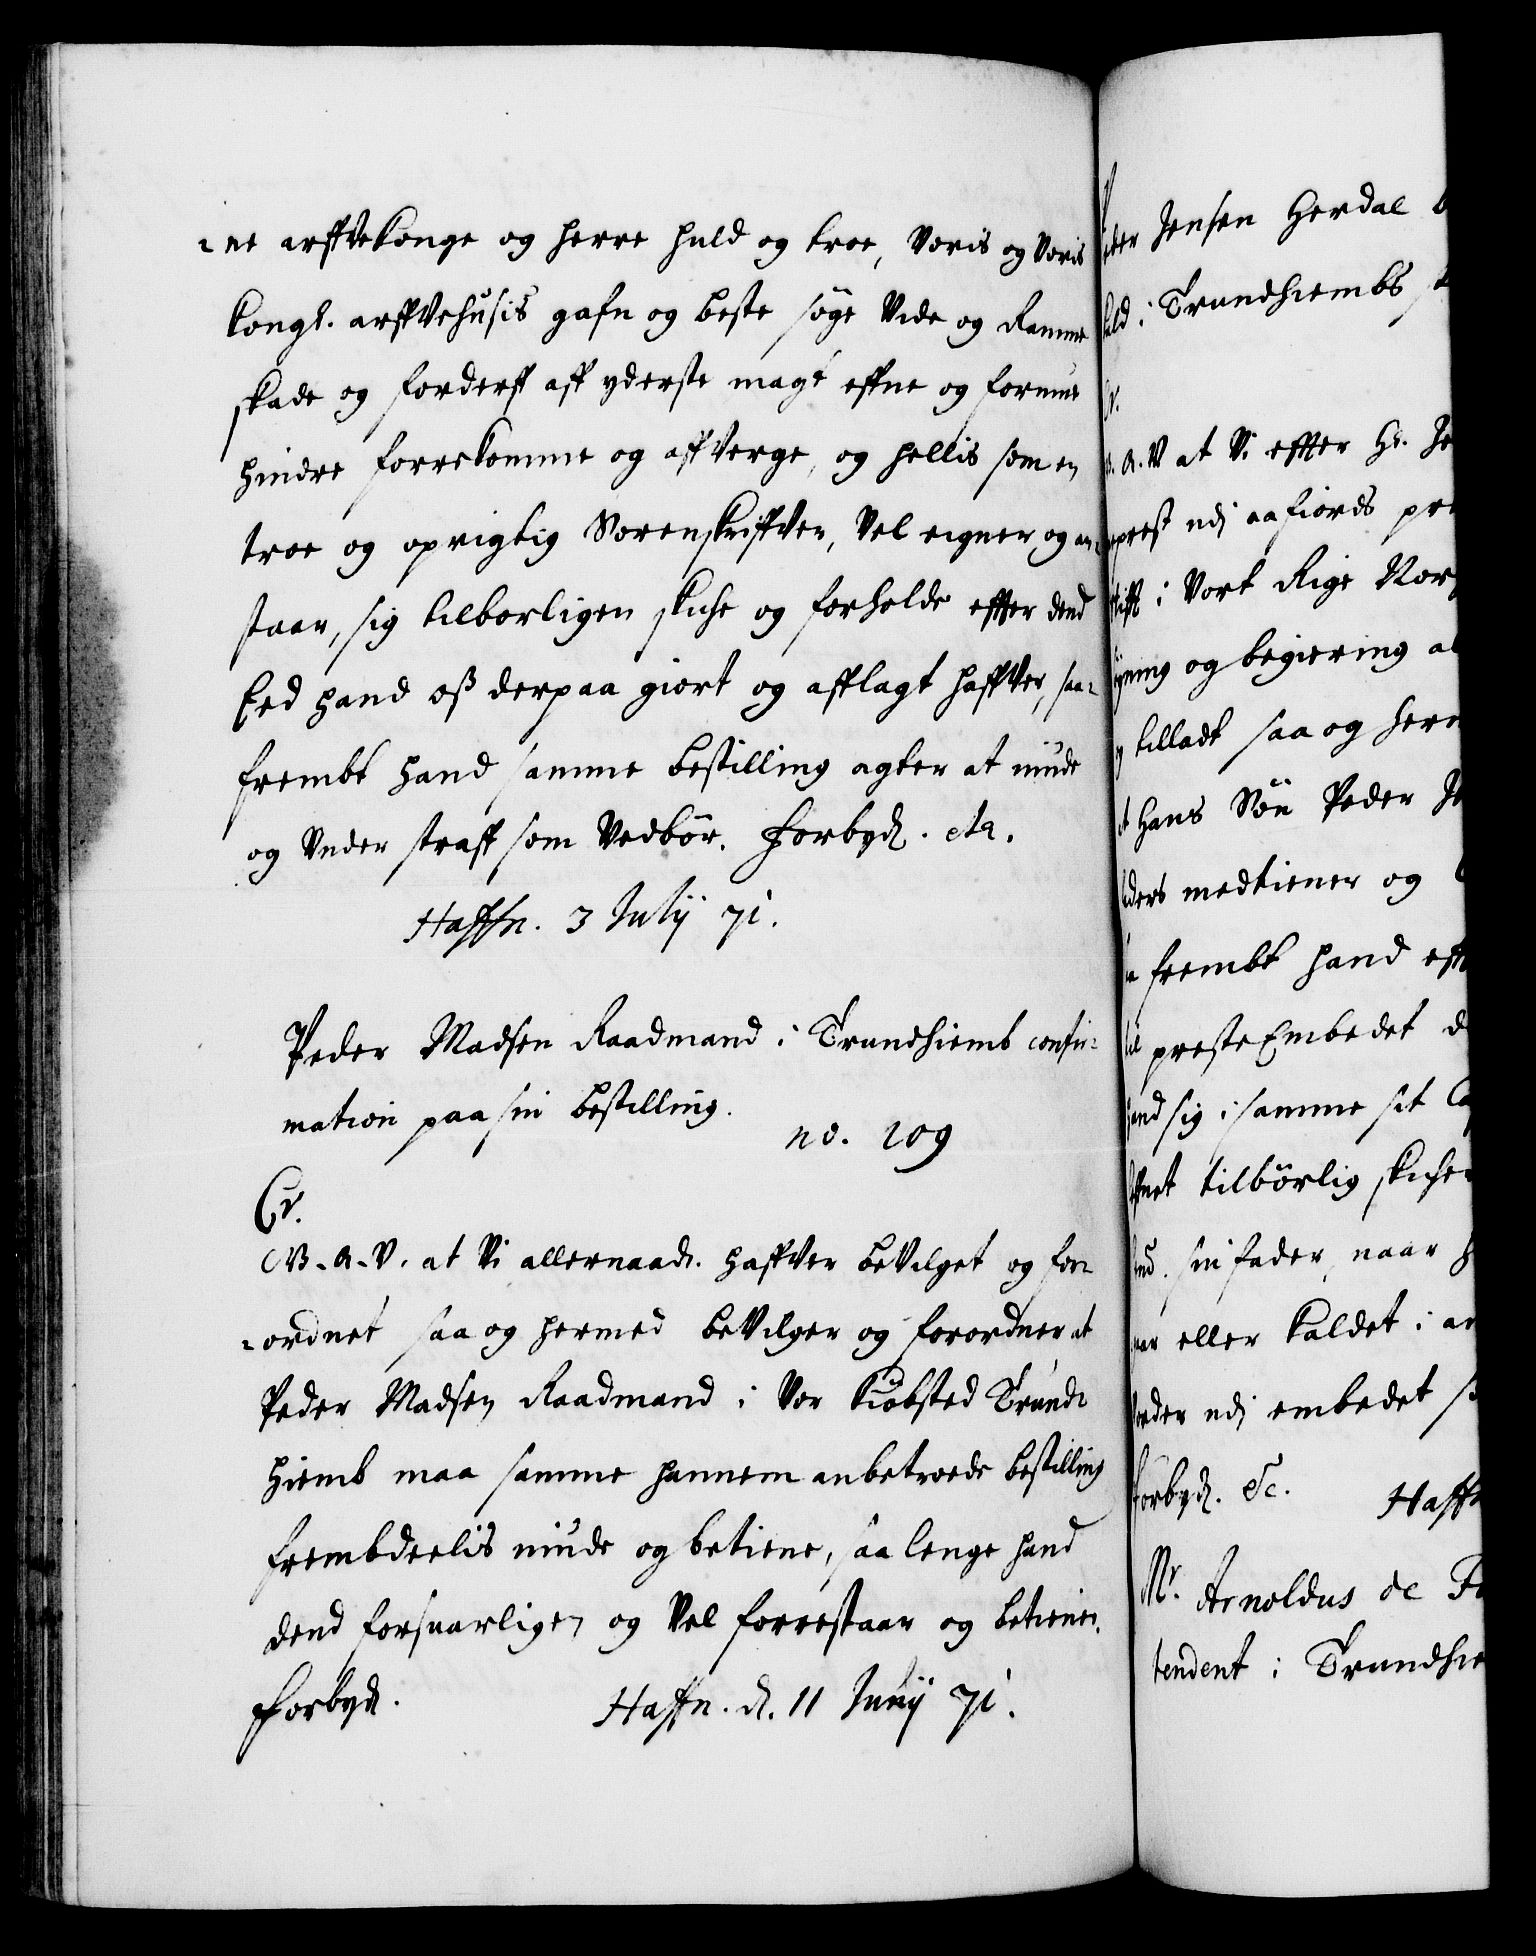 -ne arffvekonge og herre huld og troe, Voris og Voris
kongl. arffvehusis gafn og beste söge Vide og Ramme
skade og forderff aff yderste magt effne og formue
hindre forrekomme og affverge, og hellis som en
troe og oprigtig Sorenskriffver, Vel eigner og an-
staar, sig tilborligen skicke og forholde effter dend
Eed hand oß derpaa giort og afflagt haffver, saa-
frembt hand samme bestilling agter at niude
og Vnder straff som Vedbör. Forbyd. etc.
Haffn. 3 Julij 71.
Peder Madsen Raadmand i Trundhiemb confir-
mation paa sin bestilling.
no. 109
C5.
G. A. V. at Vi allernaad. haffver beVilget og for-
-ordnet saa og hermed beVilger og forordner at
Peder Madsen Raadmand i Vor Kiöbsted Trund-
hiemb maa samme hannem anbetroede bestilling
frembdeelis niude og betiene, saa lenge hand
dend forsuarligen og Vel forrestaar og betiener.
Forbyd.
Haffn. d. 11 Junij 71.
Jensen Herdal
i Trundhiembs
A. V at Vi effter Hr.
prest udj aafiords
i Vort Rige
og begiering
tilladt saa og
Hans Sön Peder
medtiener og
frembt hand
presteEmbedet
sig i samme sit
tilbörlig
sin fader, naar
eller kaldet i
udj embedet
forbyd. &c.
Mr. Arnoldus de
tendent i